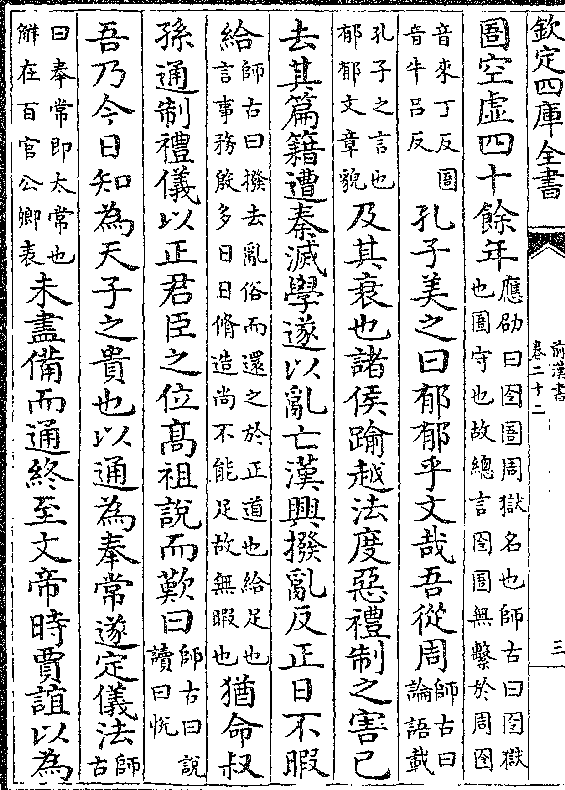 欽定四庫全書
前漢書
卷二十二
三
圄空虛四十餘年
應劭曰囹圄周獄名也師古曰囹獄
也圄守也故總言囹圄無繫於周囹
音來丁反圄
音牛吕反
孔子美之曰郁郁乎文哉吾從周
師古曰
論語載
孔子之言也
郁郁文章貌
及其衰也諸侯踰越法度惡禮制之害已
去其篇籍遭秦滅學遂以亂亡漢興撥亂反正日不暇
給
師古曰撥去亂俗而還之於正道也給足也
言事務殷多日日脩造尚不能足故無暇也
猶命叔
孫通制禮儀以正君臣之位髙祖說而歎曰
師古曰說
讀曰恱
吾乃今日知為天子之貴也以通為奉常遂定儀法
師
古
曰奉常即太常也
解在百官公卿表
未盡備而通終至文帝時賈誼以為